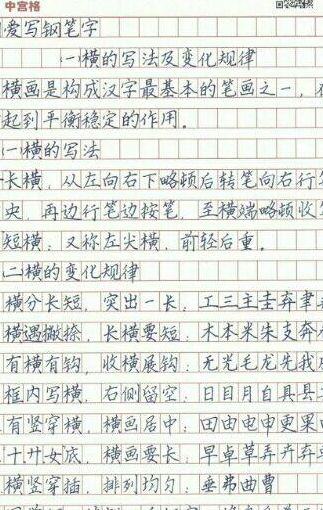 中宫格
爱写钢笔字
㈠横的写法及变化规律
横画是构成汉字最基本的笔画之一，
起到平衡稳定的作用。
㈠横的写法
长横，从左向右下略顿后转笔向右行
央，再边行笔边按笔，至横端略顿收
短横：又称左尖横，前轻后重。
㈡横的变化规律
横分长短，突出一长：工三主圭弃聿
横遇撇捺，长横要短：木本米朱支奔
有横有钩，收横展钩：无光毛龙先我
框内写横，右侧留空：日目月自具县
有竖穿横，横画居中：田由电申更果
十廾女底，横画要长：早卓草弄卉弃
横竖穿插，排列均匀：垂弗曲曹